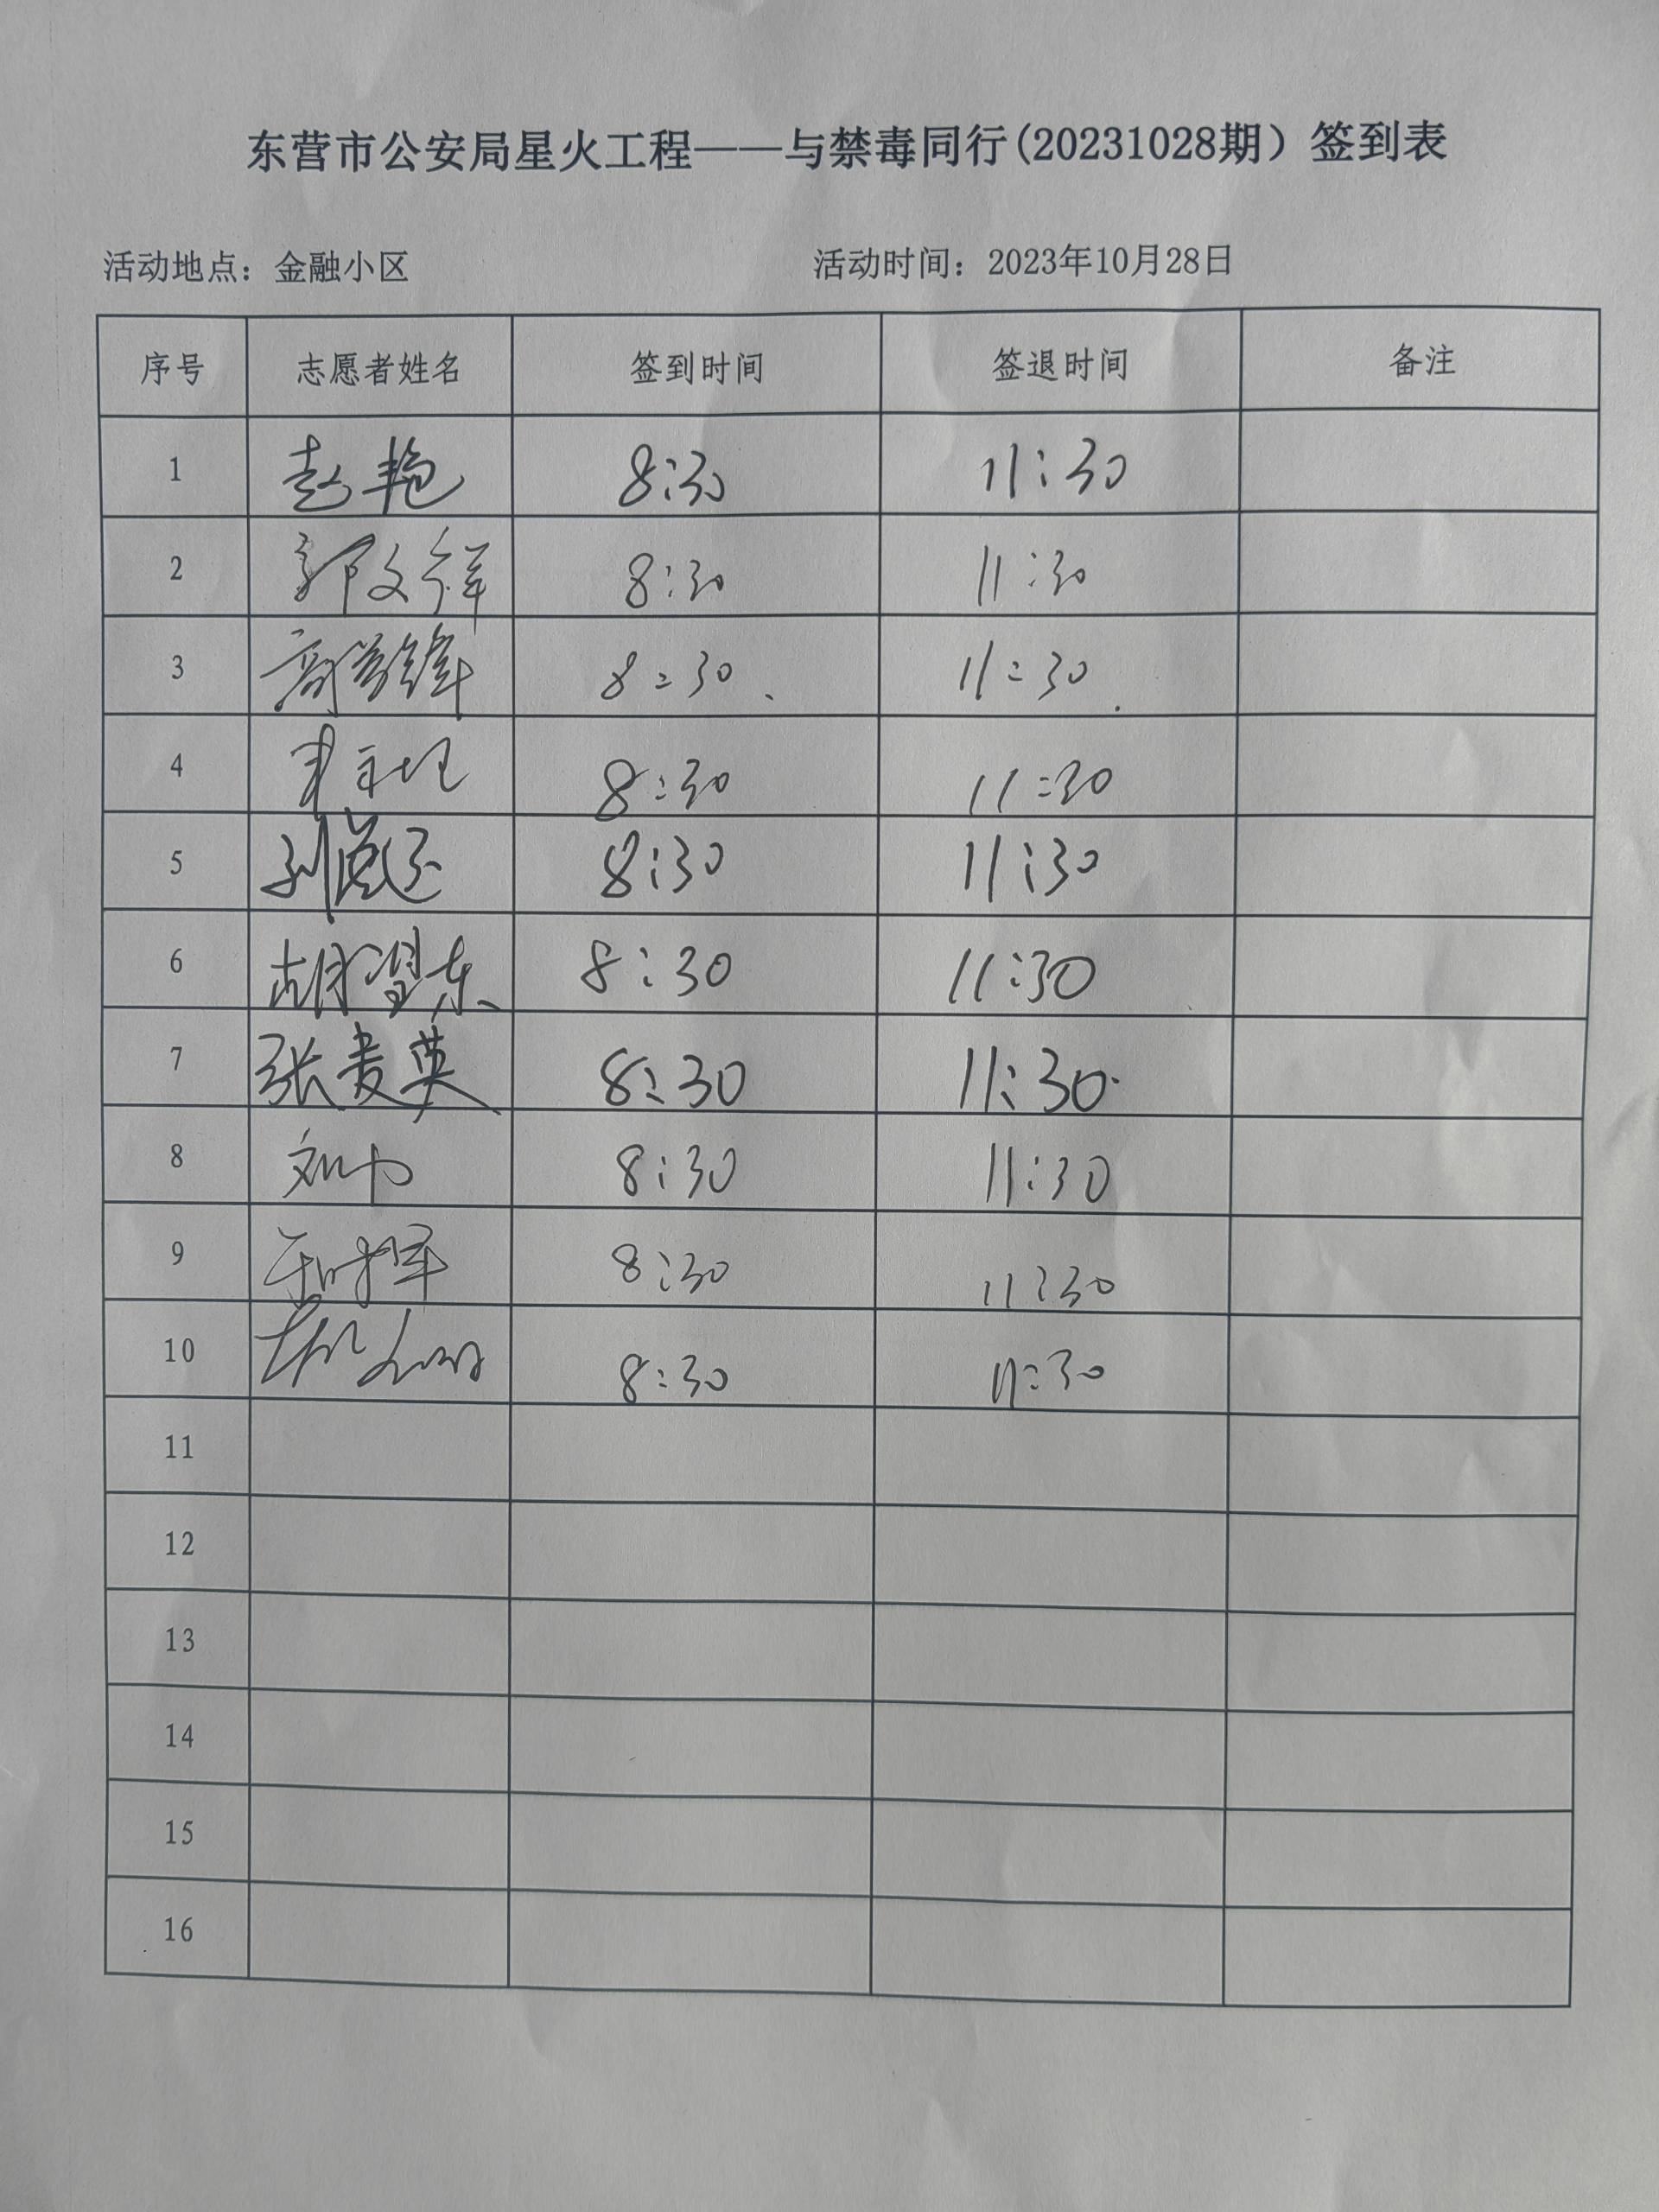 东营市公安局星火工程——与禁毒同行(20231028期）签到表
活动地点：金融小区 活动时间：2023年10月28日
序号 志愿者姓名 签到时间 签退时间 备注
1 赵艳 8:30 11:30
2 郭文祥 8:30 11:30
3 8:30 11:30
4 8:30 11:30
5 8:30 11:30
6 胡望东 8:30 11:30
7 张贵英 8:30 11:30
8 8:30 11:30
9 8:30 11:30
10 8:30 11:30
11
12
13
14
15
16